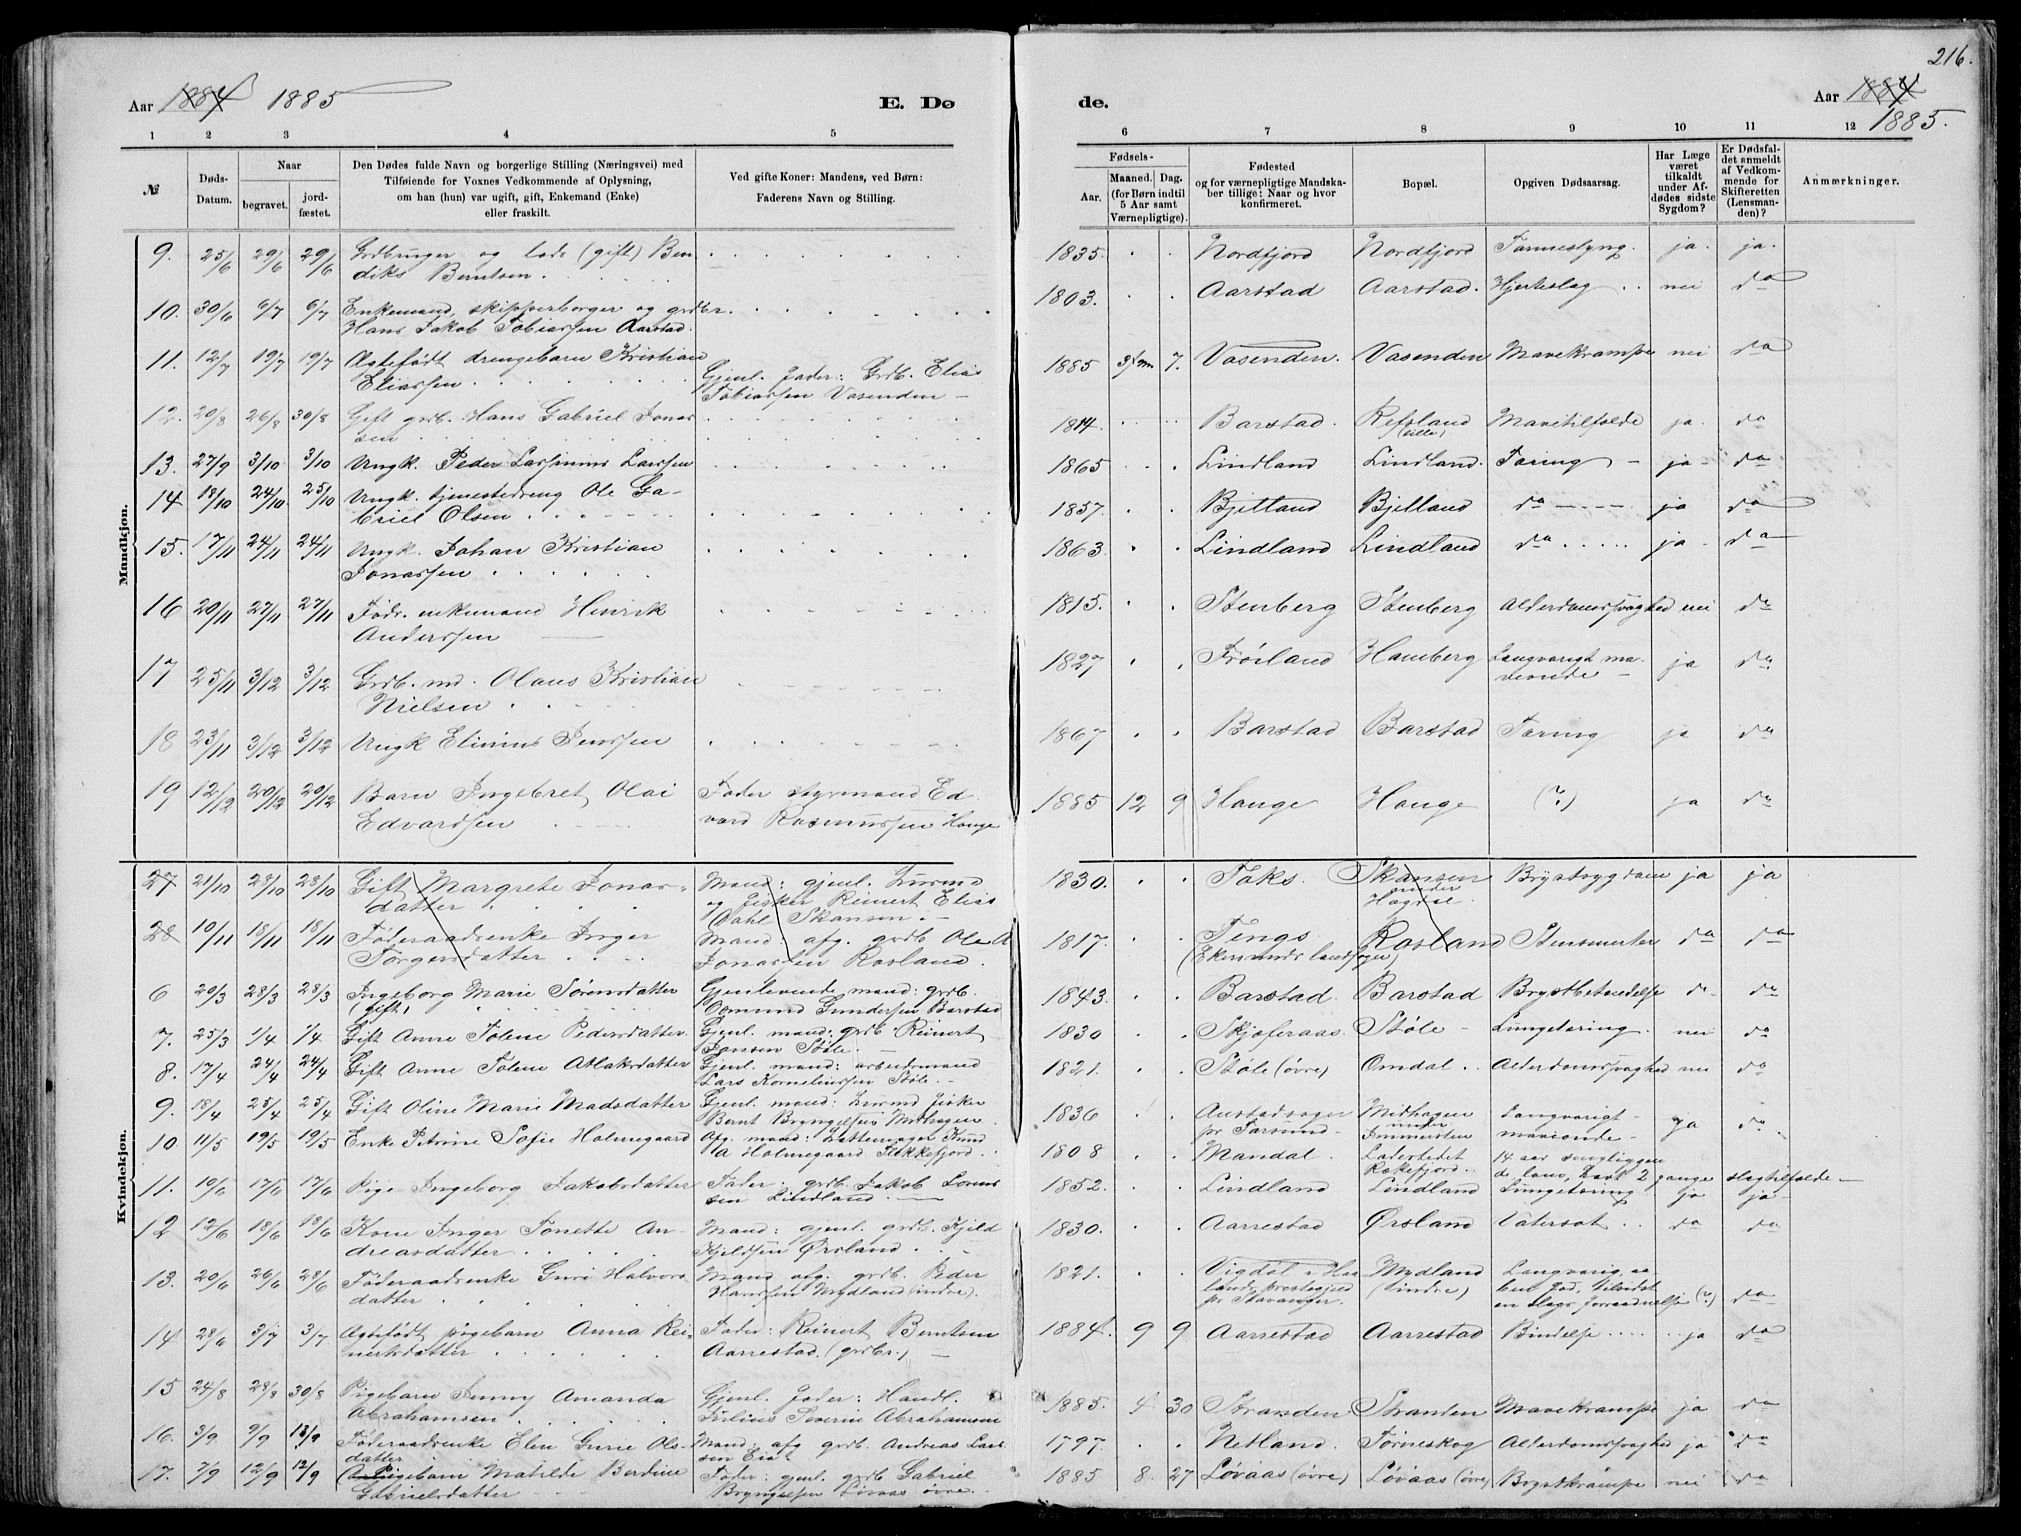 216.
Aar 1884 1885 E. Dø
de. Aar 1884 1885.
1 2 3 4 5 6 7 8 9 10 11 12
№
Døds-Datum.
Naar
begravet. jord-fæstet.
Den Dødes fulde Navn og borgerlige Stilling (Næringsvei) med
Tilføiende for Voxnes Vedkommende af Oplysning,
om han (hun) var ugift, gift, Enkemand (Enke)
eller fraskilt.
Ved gifte Koner: Mandens, ved Børn:
Faderens Navn og Stilling.
Fødsels-
Aar. Maaned. Dag.
(for Børn indtil
5 Aar samt
Værnepligtige).
Fødested
og for værnepligtige Mandska-
ber tillige: Naar og hvor
konfirmeret.
Bopæl.
Opgiven Dødsaarsag.
Har Læge
været
tilkaldt
under Af-
dødes sidste
Sygdom?
Er Dødsfal-
det anmeldt
af Vedkom-
mende for
Skifteretten
(Lensman-
den)?
Anmærkninger.
Mandkjøn.
9. 25/6 29/6 29/6 Grdbruger og lods (gift) Ben- 1835. Nordfjord Nordfjord ja. ja.
diks Berntsen.
10. 30/6 6/7 6/7 Enkemand, skipperborger og grdbr. 1803. Aarstad Aarstad. Hjerteslag nei do
Hans Jakob Tobiassen Aarstad.
11. 12/7 19/7 19/7 Ægtefødt drengebarn Kristian Gjenl. fader: Grdb. Elias 1885 7. Vasenden. Vasenden Mavekrampe nei do
Eliassen Tobiassen Vasenden
12. 20/8 26/8 30/8 Gift grdb. Hans Gabriel Jonas- 1814. Barstad. Refsland Mavetilfælde ja. do
sen (lille)
13. 27/9 3/10 3/10 Ungk. Peder Lassinius Larssen 1865 Lindland Lindland. Tæring ja do
14 18/10 24/10 25/10 Ungk. tjenestedreng Ole Ga- 1857. Bjelland Bjelland do ja do
briel Olsen
15. 17/11 24/11 24/11 Ungk. Johan Kristian 1863. Lindland Lindland do ja do
Jonassen
16 20/11 27/11 27/11 Fødr. enkemand Henrik 1815. Stenberg Stenberg Alderdomssvaghed nei do
Anderssen
17 25/11 3/12 3/12 Grdb. md. Olaus Kristian 1827 Frøiland Hamberg Langvarigt ma- ja do
Nielsen veonde
18 23/11 3/12 3/12 Ungk Elinius Jenssen 1867 Barstad Barstad Tæring ja do
19 12/12 20/12 20/12 Barn Ingebret Olai Fader styrmand Ed- 1885 12 9 Hauge Hauge (?) ja do
Edvardsen vard Rasmussen Hauge
Kvindekjøn.
27 21/10 28/10 28/10 Gift Margrete Jonas- Mand: gjenl. Lurend 1830. Foks. Skansen Brystsygdom ja ja
datter og fisker Reinert Elias under
Dahl Skansen.
28 10/11 18/11 18/11 Føderaadsenke Inger Mand: afg. grdb Ole A 1817. Tengs Rosland Stensmerter do do
Torgersdatter Jonassen Rosland. (Ekersunds landsogn)
6 20/3 28/3 28/3 Ingeborg Marie Sørensdatter Gjenlevende mand: grdb. 1843. Barstad. Barstad Brystbetændelse do do
(gift) Osmund Gundersen Barstad
7. 25/3 1/4 1/4 Gift Anne Tolene Pedersdatter. Gjenl. mand: grdb Reinert 1830 Skjæveraas Støle Lungetæring. nei do
Jansen Støle.
8. 17/4 24/4 24/4 Gift Anne Tolene Atlaksdatter Gjenl. mand: arbeidsmand 1821. Støle (øvre) Omdal Alderdomssvaghed nei do
Lars Korneliussen Støle.
9. 18/4 25/4 25/4 Gift Oline Marie Madsdatter Gjenl. mand: Lurend fisker 1836 Austadsogn Midhagen Langvarigt ja do
Bernt Bryngelsen Midhagen pr Farsund under maveonde
10 11/5 19/5 19/5 Enke Petrine Sofie Holmegaard Afg. mand: Knud 1808 Mandal. Ladestedet 14 aar sengliggen-
A Holmegaard Flekkefjord. Rekefjord. de lam, havt 2 gange slagtilfælde
11. 10/6 17/6 17/6 Pige Ingeborg Jakobsdatter Fader: grdb. Jakob Lorens- 1852. Lindland Lindland Lungetæring ja ja
sen Lindland.
12 12/6 18/6 18/6 Kone Inger Tonette An- Mand: gjenl. grdb. Kjeld 1830. Aarrestad Ørsland Vatersot do do
dreasdatter Kjeldsen Ørsland.
13. 20/6 26/6 28/6 Føderaadsenke Guro Halvors- Mand afg. grdb. Peder 1821. Vigdal i Haa- Mydland Langvarig aa-
datter Hanssen Mydland (indre). lands prestegjeld (indre) ben fod, tilsidst
pr Stavanger. en slags forraadnelse (?) do
14 28/6 3/7 3/7 Ægtefødt pigebarn Anna Rei- Fader: Reinert Berntsen 1884. 9 9. Aarrestad Aarrestad Bindelse ja do
nertsdatter Aarrestad. (grdbr.)
15 24/8 28/8 30/8 Pigebarn Jenny Amanda Gjenl. fader: Handl. 1885. 4 30 Stranden Stranden Mavekrampe ja do
Abrahamsen Julius Severin Abrahamsen
16. 3/9 9/9 13/9 Føderaadsenke Elen Gurie Ols- Mand: afg grdb. Andreas Lars- 1797. Netland. Tørneskog Alderdomssvaghed ja do
datter sen Eia
17. 7/9 12/9 12/9 Pigebarn Matilde Berdine Fader: gjenl. grdb Gabriel 1885 8. 27 Løvaas (øvre) Løvaas (øvre) Brystkrampe nei do
Gabrielsdatter Bryngelsen Løvaas øvre.